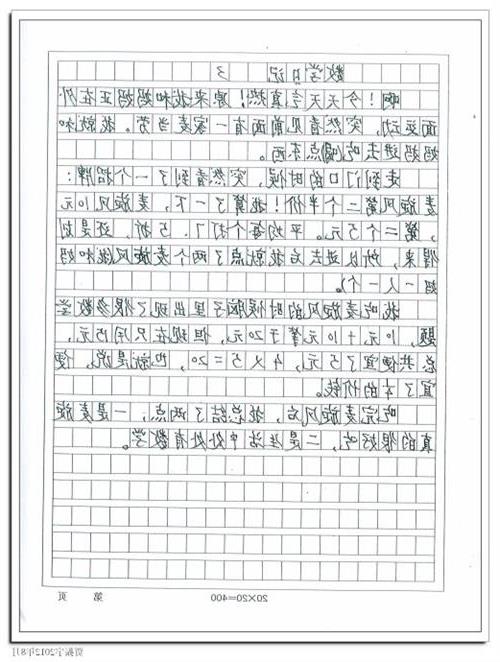 数学日记 3
啊！今天天言真热！原来我和妈妈正在外
面运动，突然看见前面有一家麦当劳。我就和
妈妈进去吃喝点东西。
走到门口的时候，突然看到了一个招牌：
麦旋风第二个半价！我算了一下，麦旋风10元
，第二个5元。平均每个打7.5折，还是划
得来，所以进去后我就点了两个麦旋风(我和妈
妈一人一个)。
我吃麦旋风的时候脑子里出现了很多数学
题，10元+10元等于20元，但现在只用15元，
总共便宜了5元，4×5=20，也就是说，便
宜了1/4的价钱。
吃完麦旋风后，我总结了两点，一是麦旋
真的很好吃，二是生活中处处有数学。
20×20=400 第 页
2012年8月